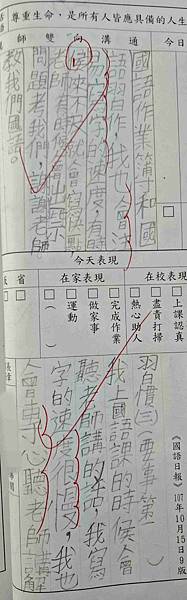 尊重生命，是所有人皆應具備的人生
今日
師生雙向溝通
國語作業簿和國
語習作，我也會注
意寫字的速度，有時
候
問題考我們，謝謝老師
教我們國語。
今天表現
在校表現
□上課認真
□盡責打掃
□熱心助人
在家表現
□完成作業
□做家事
□運動
□（　）
省
《國語日報》107年10月15日9版
習慣(三)要事第一
我上國語課的時候會
聽老師講的話，我寫
字的速度很慢，我也
會專心聽老師講解